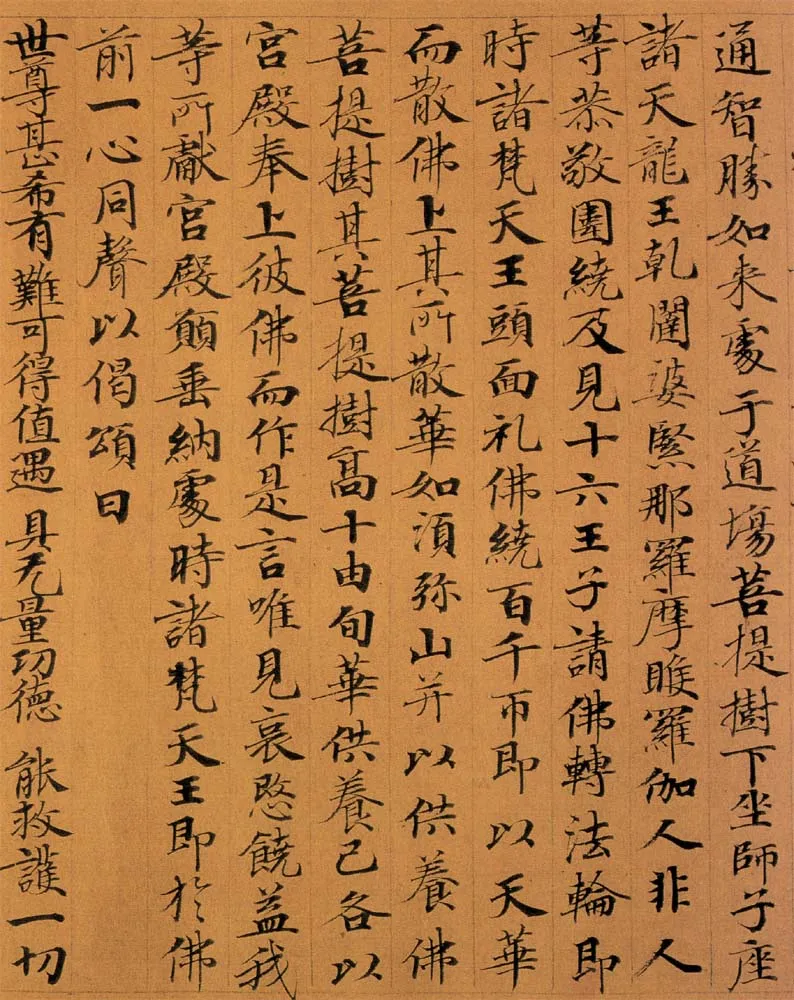 通智勝如来處于道場菩提樹下坐師子座
諸天龍王乹闥婆緊那羅摩睺羅伽人非人
等恭敬圍繞及見十六王子請佛轉法輪即
時諸梵天王頭面礼佛繞百千帀即以天華
而散佛上其所散華如湏弥山并以供養佛
菩提樹其菩提樹髙十由旬華供養已各以
宮殿奉上彼佛而作是言唯見哀愍饒益我
等所獻宮殿願垂納處時諸梵天王即於佛
前一心同聲以偈頌曰
世尊甚希有 難可得值遇 具无量功德 能救護一切